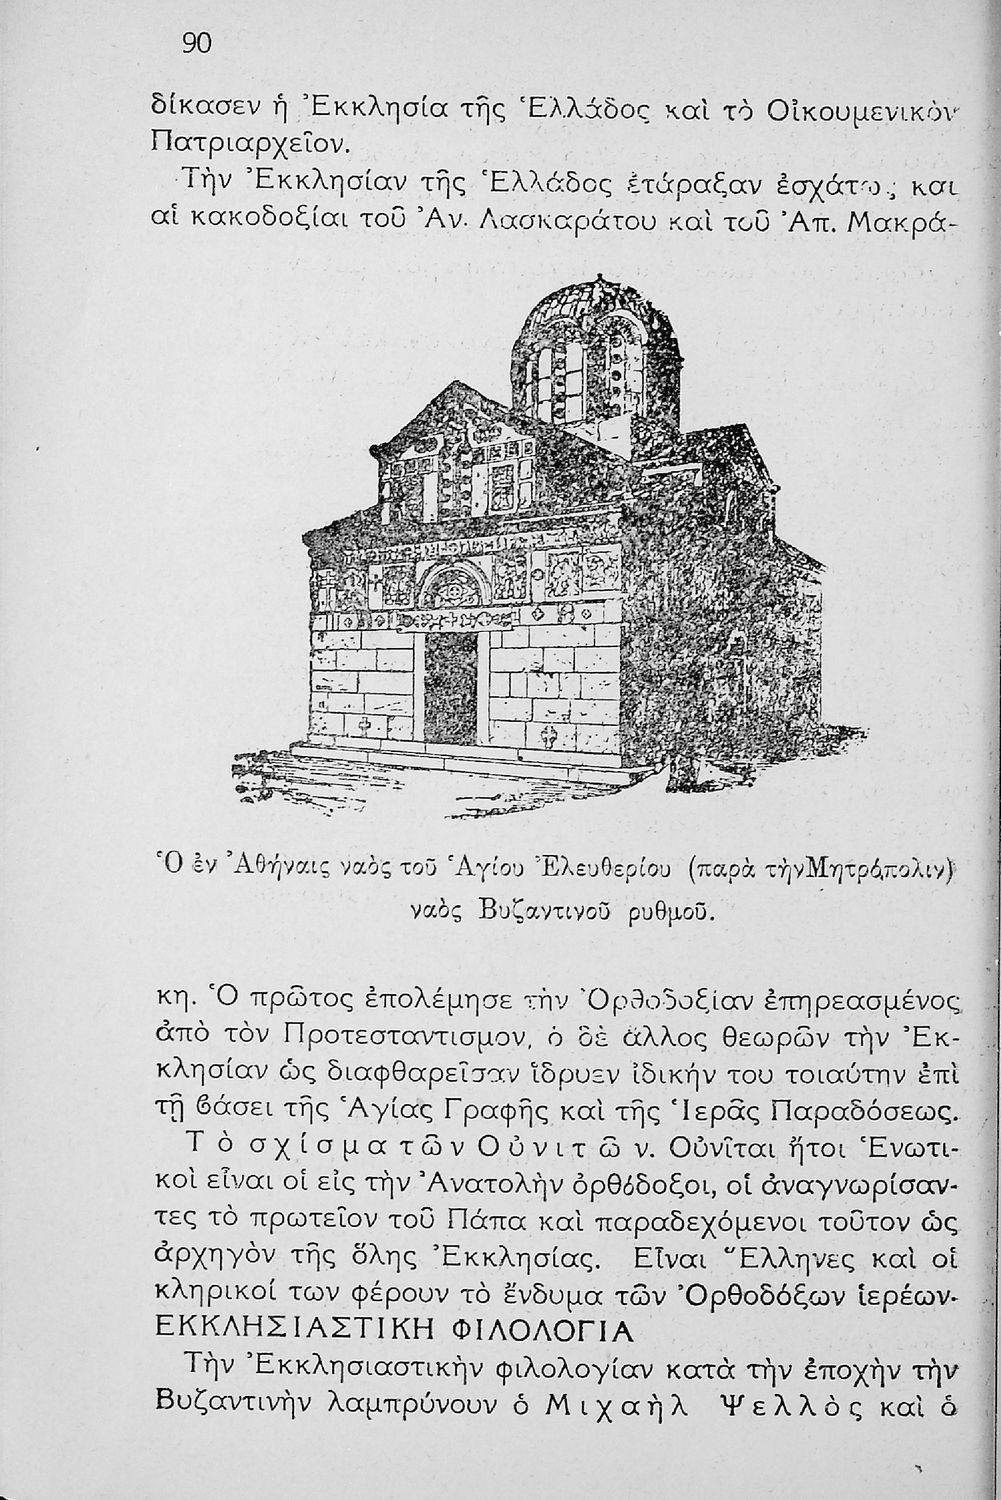 90
δίκασεν ἡ Ἐκκλησία τῆς Ἑλλάδος καὶ τὸ Οἰκουμενικὸν
Πατριαρχεῖον.
Τὴν Ἐκκλησίαν τῆς Ἑλλάδος ἐτάραξαν ἐσχάτως και
αἱ κακοδοξίαι τοῦ Ἀν. Λασκαράτου καὶ τοῦ Ἀπ. Μακρά-
Ὁ ἐν Ἀθήναις ναὸς τοῦ Ἁγίου Ἐλευθερίου (παρὰ τὴνΜητρόπολιν)
ναὸς Βυζαντινοῦ ρυθμοῦ.
κη. Ὁ πρῶτος ἐπολέμησε τὴν Ὀρθοδοξίαν ἐπηρεασμένος
ἀπὸ τὸν Προτεσταντισμον, ὁ δὲ ἄλλος θεωρῶν τὴν Ἐκ-
κλησίαν ὡς διαφθαρεῖσαν ἵδρυεν ἰδικήν του τοιαύτην ἐπὶ
τῇ βάσει τῆς Ἁγίας Γραφῆς καὶ τῆς Ἱερᾶς Παραδόσεως.
Τὸ σχίσμα τῶν Οὐνιτῶν. Οὐνῖται ἤτοι Ἑνωτι-
κοὶ εἶναι οἱ εἰς τὴν Ἀνατολὴν ὀρθόδοξοι, οἱ ἀναγνωρίσαν-
τες τὸ πρωτεῖον τοῦ Πάπα καὶ παραδεχόμενοι τοῦτον ὡς
ἀρχηγὸν τῆς ὅλης Ἐκκλησίας. Εἶναι Ἕλληνες καὶ οἱ
κληρικοί των φέρουν τὸ ἔνδυμα τῶν Ὀρθοδόξων ἱερέων.
ΕΚΚΛΗΣΙΑΣΤΙΚΗ ΦΙΛΟΛΟΓΙΑ
Τὴν Ἐκκλησιαστικὴν φιλολογίαν κατὰ τὴν ἐποχὴν τὴν
Βυζαντινὴν λαμπρύνουν ὁ Μιχαὴλ Ψελλὸς καὶ ὁ